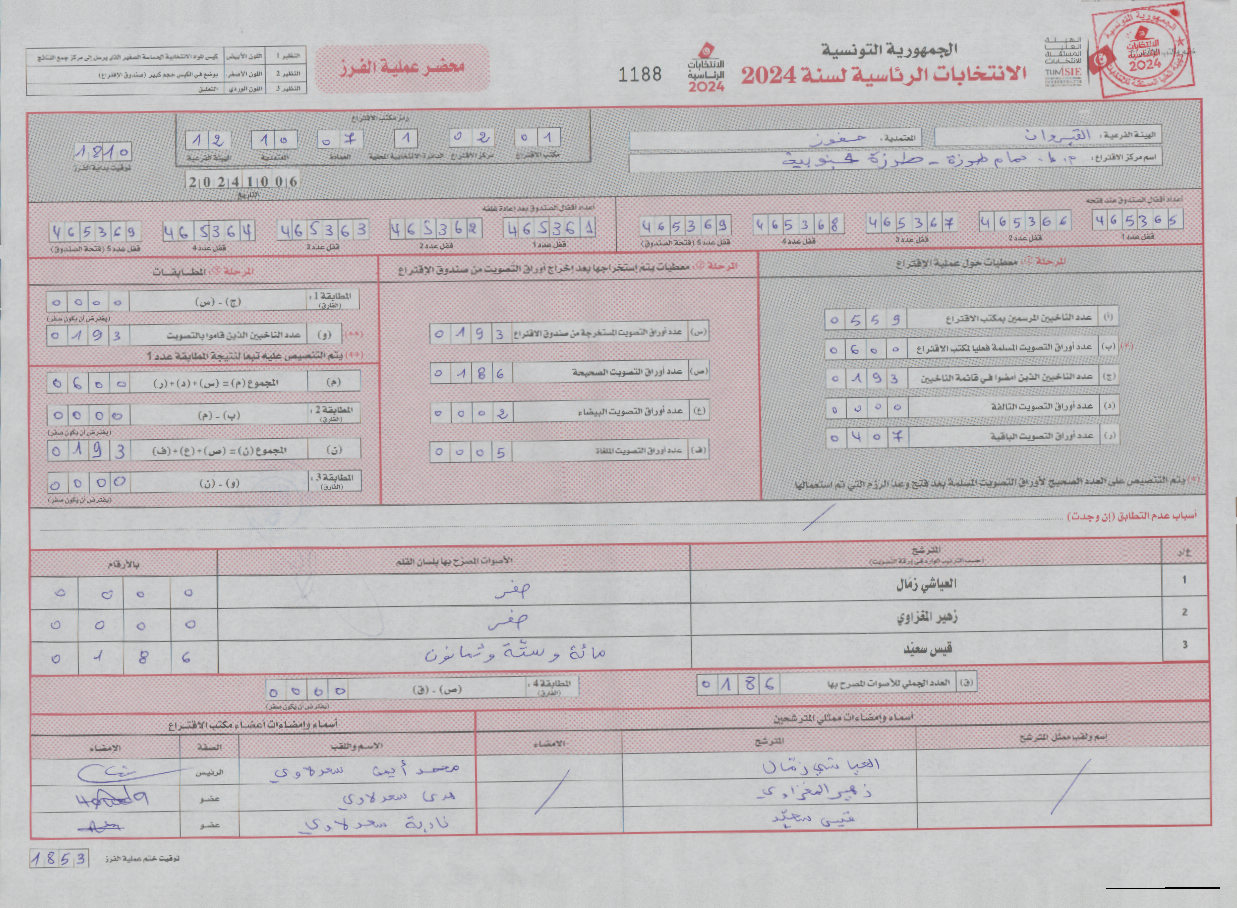 الجمهورية التونسية
الانتخابات الرئاسية لسنة 2024
الهيئة العليا المستقلة للانتخابات
الانتخابات الرئاسية 2024
1188
محضر عملية الفرز
النظير 1 اللون الأبيض
النظير 2 اللون الأصفر يوضع في الكيس حجم كبير (صندوق الاقتراع)
النظير 3 اللون الوردي التعليق
الهيئة الفرعية: القيروان المعتمدية: حفوز
اسم مركز الاقتراع:
رمز مكتب الاقتراع
01 02 1 07 10 12
مكتب الاقتراع مركز الاقتراع الدائرة الانتخابية المحلية العمادة المعتمدية الهيئة الفرعية
20241006
التاريخ
1810
توقيت بداية الفرز
أعداد أقفال الصندوق عند فتحه
465365 465366 465367 465368 465369
قفل عدد 1 قفل عدد 2 قفل عدد 3 قفل عدد 4 قفل عدد 5 (فتحة الصندوق)
أعداد أقفال الصندوق بعد إعادة غلقه
465361 465362 465363 465364 465369
قفل عدد 1 قفل عدد 2 قفل عدد 3 قفل عدد 4 قفل عدد 5 (فتحة الصندوق)
المرحلة ①: معطيات حول عملية الاقتراع
(أ) عدد الناخبين المرسمين بمكتب الاقتراع 0559
(*) (ب) عدد أوراق التصويت المسلمة فعليا لمكتب الاقتراع 0600
(ج) عدد الناخبين الذين أمضوا في قائمة الناخبين 0193
(د) عدد أوراق التصويت التالفة 0000
(ر) عدد أوراق التصويت الباقية 0407
(*) يتم التنصيص على العدد الصحيح لأوراق التصويت المسلمة بعد فتح وعد الرزم التي تم استعمالها
المرحلة ②: معطيات يتم إستخراجها بعد إخراج أوراق التصويت من صندوق الاقتراع
(س) عدد أوراق التصويت المستخرجة من صندوق الاقتراع 0193
(ص) عدد أوراق التصويت الصحيحة 0186
(ع) عدد أوراق التصويت البيضاء 0002
(ف) عدد أوراق التصويت الملغاة 0005
المرحلة ③: المطابقات
المطابقة 1: (الفارق) (ج) - (س) 0000
(يفترض أن يكون صفر)
(**) (و) عدد الناخبين الذين قاموا بالتصويت 0193
(**) يتم التنصيص عليه تبعا لنتيجة المطابقة عدد 1
(م) المجموع (م) = (س) + (د) + (ر) 0600
المطابقة 2: (الفارق) (ب) - (م) 0000
(يفترض أن يكون صفر)
(ن) المجموع (ن) = (ص) + (ع) + (ف) 0193
المطابقة 3: (الفارق) (و) - (ن) 0000
(يفترض أن يكون صفر)
أسباب عدم التطابق (إن وجدت)
ع/د المترشح (حسب الترتيب الوارد في ورقة التصويت) الأصوات المصرح بها بلسان القلم بالأرقام
1 العياشي زمال صفر 0000
2 زهير المغزاوي صفر 0000
3 قيس سعيد مائة وستة وثمانون 0186
(ق) العدد الجملي للأصوات المصرح بها 0186
المطابقة 4: (الفارق) (ص) - (ق) 0000
(يفترض أن يكون صفر)
أسماء وإمضاءات ممثلي المترشحين
إسم ولقب ممثل المترشح المترشح الامضاء
العياشي زمّال
زهير المغزاوي
قيس سعيّد
أسماء وإمضاءات أعضاء مكتب الاقتراع
الاسم واللقب الصفة الإمضاء
محمد أيمن سعداوي الرئيس
هدى سعداوي عضو
نادية سعداوي عضو
توقيت ختم عملية الفرز 1853